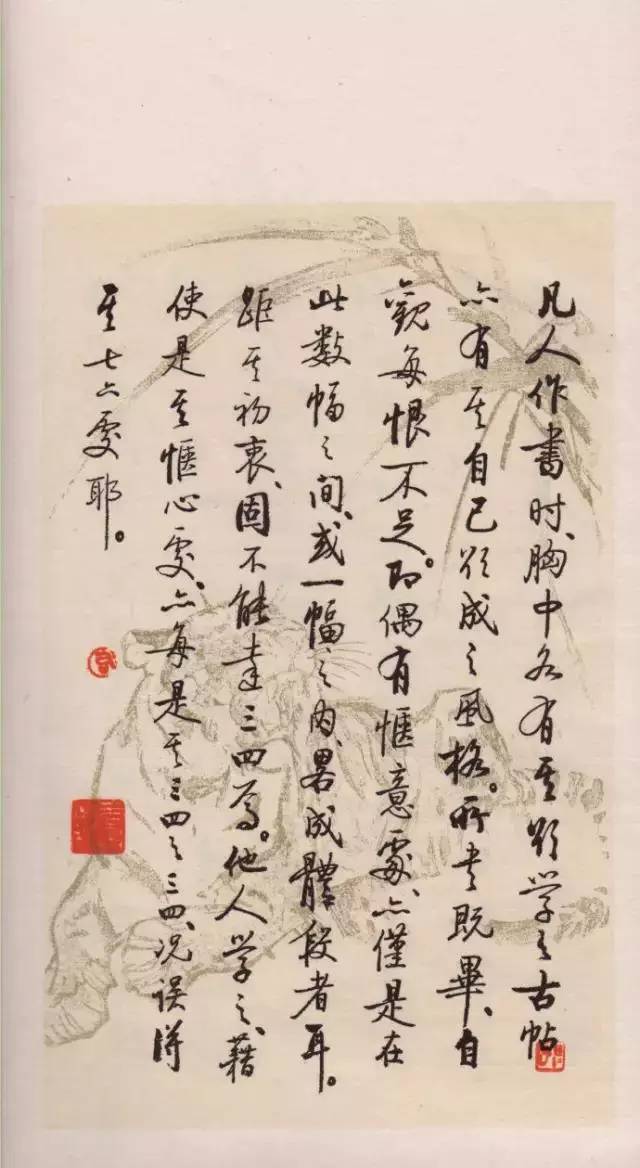 凡人作書时、胸中各有其欲学之古帖
亦有其自己欲成之風格。所书既畢、自
觀每恨不足。即偶有惬意處、亦僅是在
此数幅之间、或一幅之内、畧成體段者耳。
距其初衷、固不能達三四焉。他人学之、藉
使是其惬心處、亦每是其三四之三四、况误得
其七六處耶。